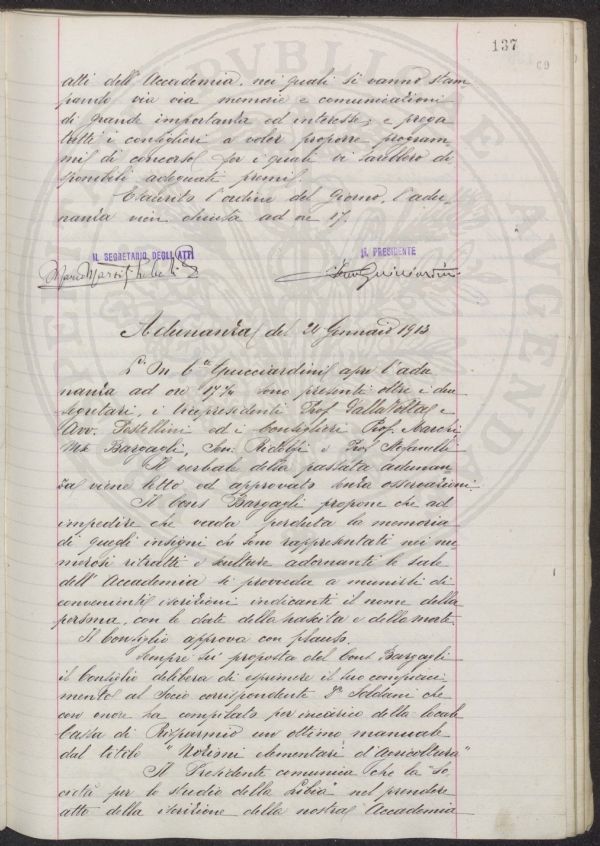 137
69
atti dell'Accademia, nei quali si vanno stam
pando via via memorie e comunicazioni
di grande importanza ed interesse; e prega
tutti i consiglieri a voler proporre program
mi di concorso per i quali vi sarebbero di
sponibili adeguati premi.
Esaurito l'ordine del giorno, l'adu
nanza vien chiusa ad ore 17.
IL SEGRETARIO DEGLI ATTI
IL PRESIDENTE
Adunanza del 24 Gennaio 1913
Guicciardini apre l'adu
nanza ad ore 17 1/4 sono presenti oltre i due
segretari, i Vicepresidenti Prof. Dalla Volta e
Avv. Pestellini ed i Consiglieri Prof. Marchi
Bargagli, Sen. Ridolfi e Prof Stefanelli
Il verbale della passata adunan
za viene letto ed approvato senza osservazioni.
Il Cons Bargagli propone che ad
impedire che vada perduta la memoria
di quegli insigni che sono rappresentati nei nu
merosi ritratti e sculture adornanti le sale
dell'Accademia si provveda a munirli di
convenienti iscrizioni indicanti il nome della
persona, con le date della nascita e della morte.
Il Consiglio approva con plauso.
Sempre su proposta del Cons Bargagli
il Consiglio delibera di esprimere il suo compiaci
mento al Socio corrispondente Soldani che
con onore ha compilato, per incarico della locale
Cassa di Risparmio un ottimo manuale
dal titolo "Nozioni elementari d'Agricoltura"
Il Presidente comunica che la "So
cietà per lo studio della Libia" nel prendere
atto della iscrizione della nostra Accademia